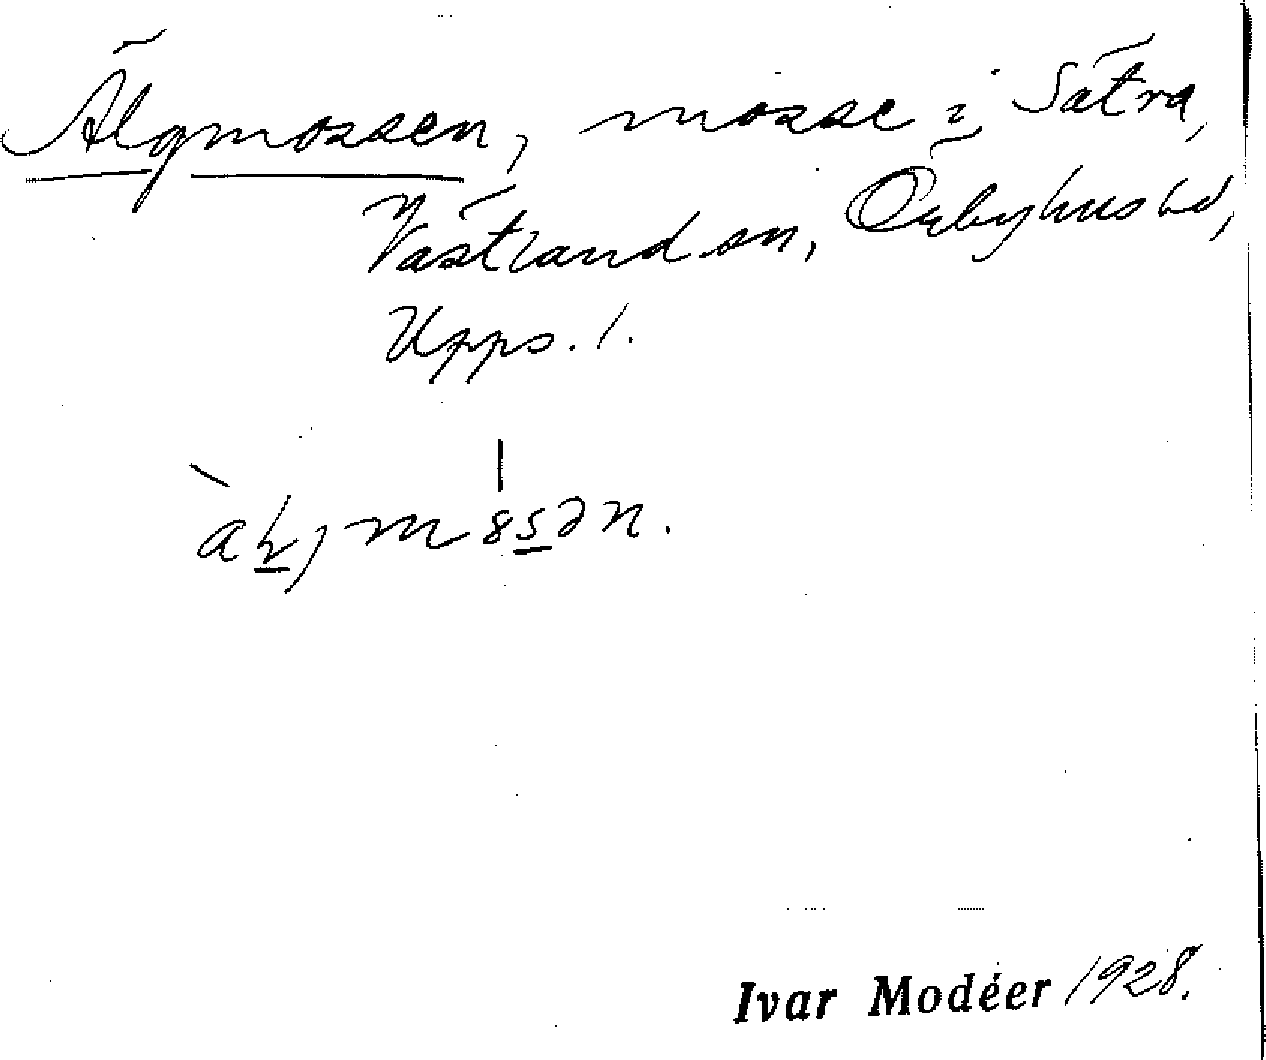 Älgmossen, mosse i Sätra,
Västland sn, Örbyhus hd,
Upps. l.
Ivar Modéer 1928.